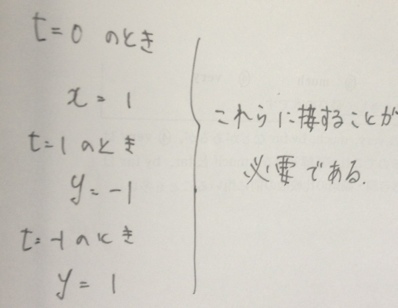 t=0 のとき
x=1
t=1 のとき
y=-1
t=-1 のとき
y=1
これらに接することが
必要である.